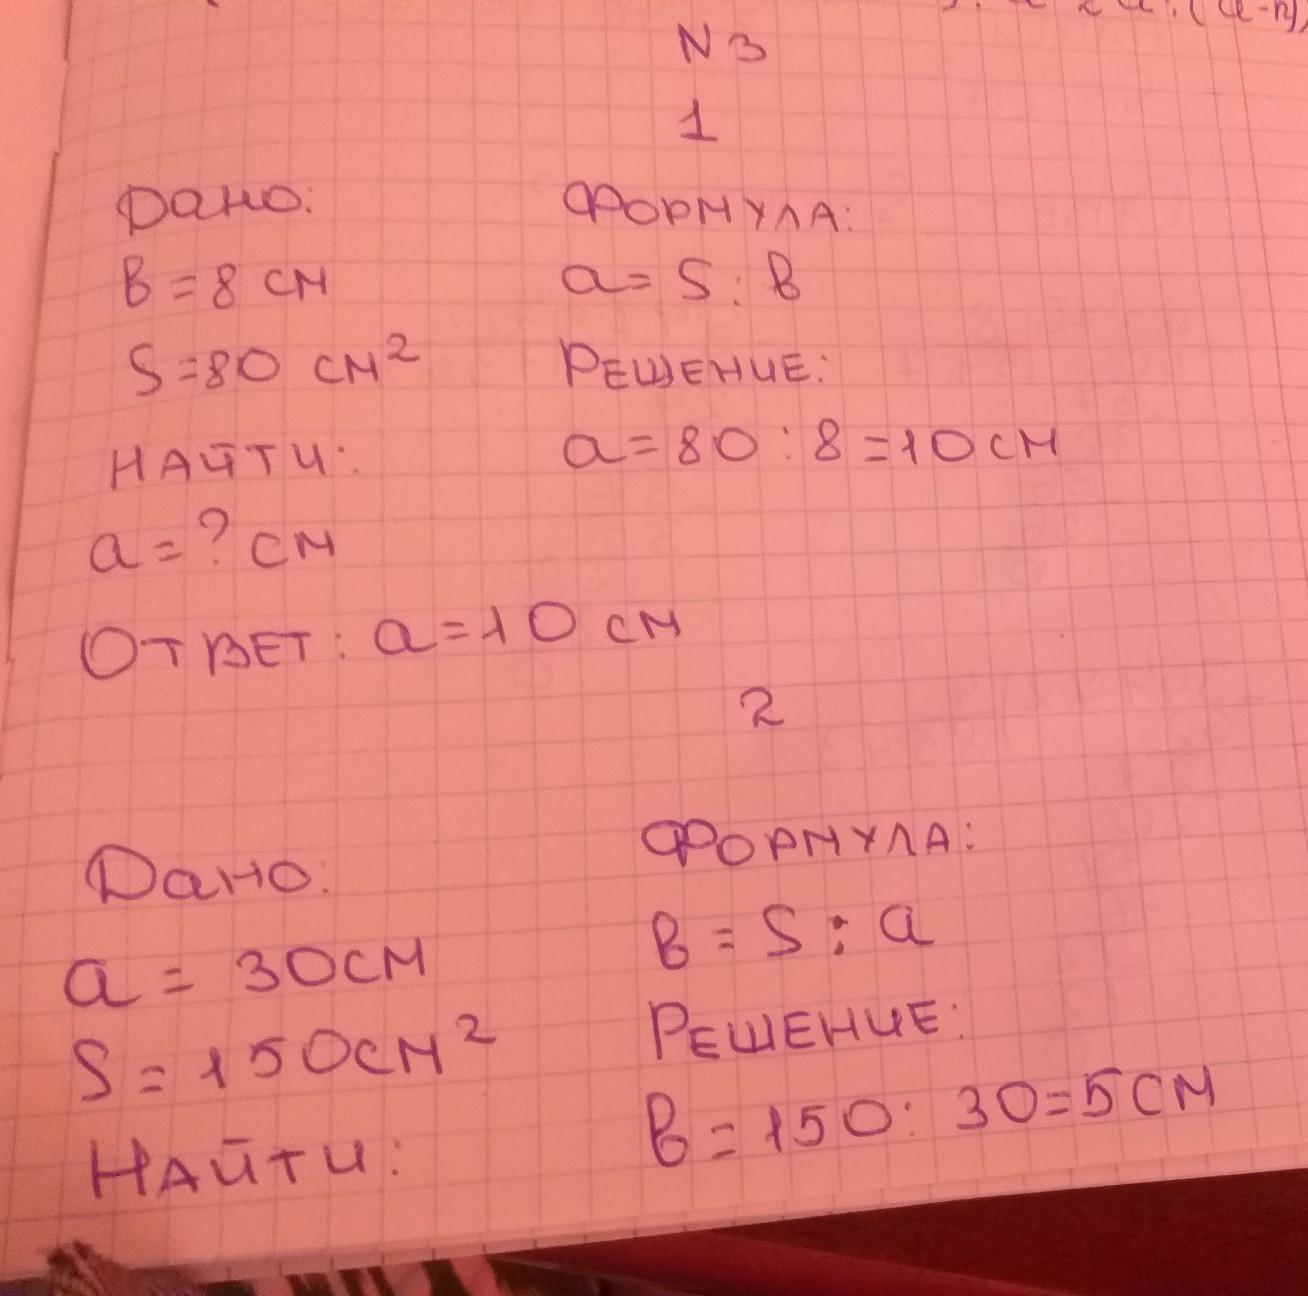 N 3
1
Дано:
в = 8 см
S = 80 см²
НАЙТИ:
а = ? см
ФОРМУЛА:
а = S : в
РЕШЕНИЕ:
а = 80 : 8 = 10 см
ОТВЕТ: а = 10 см
2
Дано:
а = 30 см
S = 150 см²
НАЙТИ:
ФОРМУЛА:
в = S : а
РЕШЕНИЕ:
в = 150 : 30 = 5 см